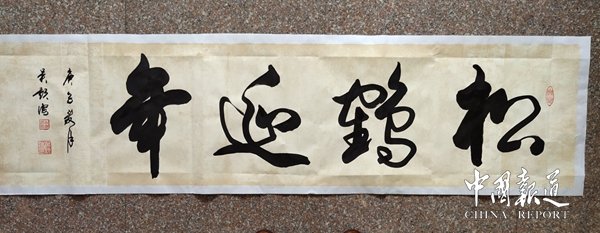 松鶴延年
庚子月
中國報道
CHINA REPORT